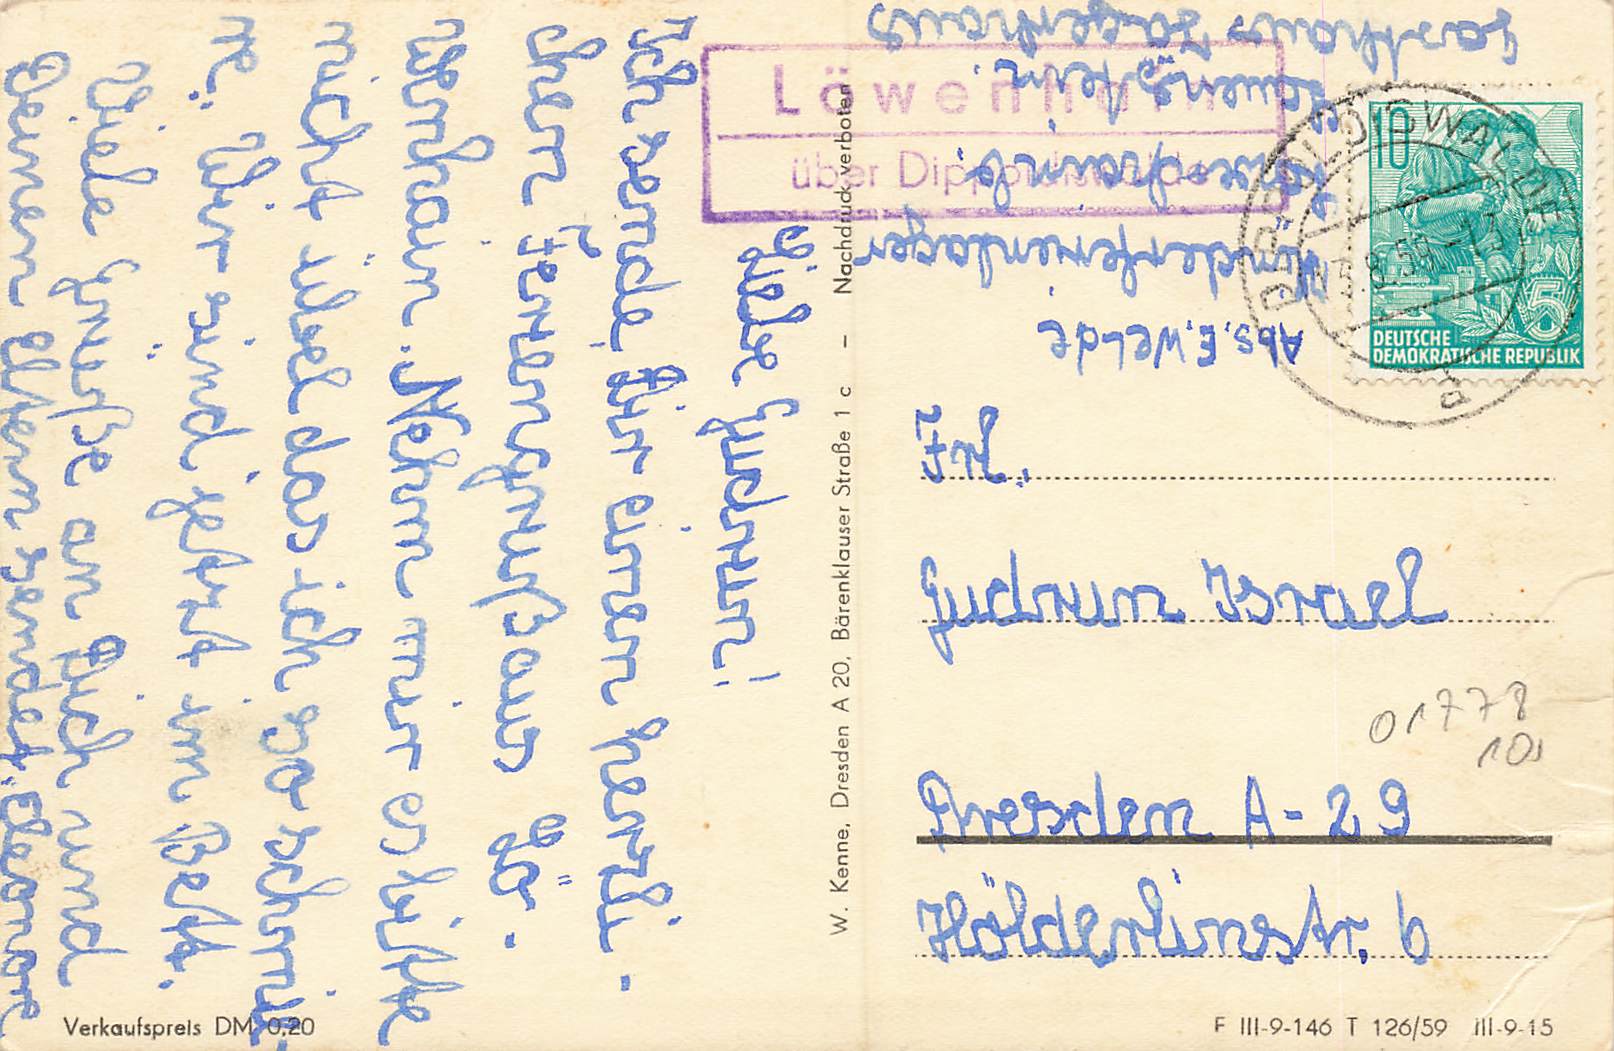 Liebe Gudrun!
Ich sende Dir einen herzli-
chen Feriengruß aus Lö-
wenhain. Nehm mir es bitte
nicht übel das ich so schmie-
re. Wir sind jetzt im Bett.
Viele Grüße an Dich und
Deinen Eltern sendet Eleonore
W. Kenne, Dresden A 20, Bärenklauser Straße 1 c – Nachdruck verboten
Verkaufspreis DM 0,20
Löwenhain
über Dippoldiswalde
DIPPOLDISWALDE
DEUTSCHE
DEMOKRATISCHE REPUBLIK
10
5
Abs. E. Welde
Kinderferienlager
Löwenhain b.
Lauenstein
Gasthaus Jägerhaus
Frl.
Gudrun Israel
Dresden A-29
Hölderlinstr. 6
01778
10,
F III-9-146 T 126/59 III-9-15